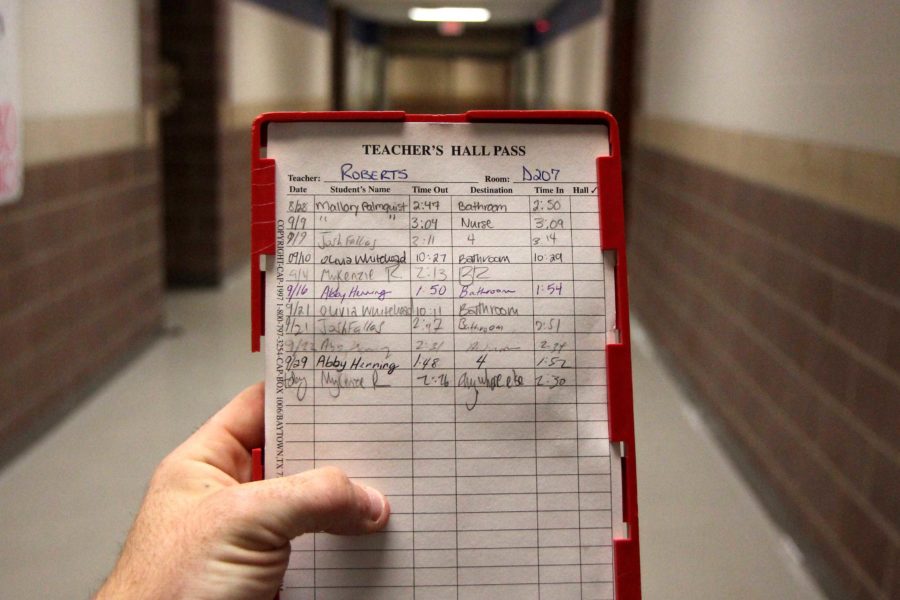 TEACHER'S HALL PASS
Teacher: ROBERTS Room: D207
Date Student's Name Time Out Destination Time In Hall ✓
8/28 Mallory Palmquist 2:47 Bathroom 2:50
9/9 " " 3:04 Nurse 3:09
9/9 Josh Fallas 2:11 4 2:14
09/10 Olivia Whitehead 10:27 Bathroom 10:29
9/4 McKenzie R 2:13 BR
9/16 Abby Henning 1:50 Bathroom 1:54
9/21 Olivia Whitehead 10:11 Bathroom
9/21 Josh Fallas 2:47 Bathroom 2:51
2:31
9/29 Abby Henning 1:48 4 1:52
R 2:26 anywhere else 2:30
COPYRIGHT-CAP-1997 1-800-797-3254-CAP-BOX 1006/BAYTOWN,TX 7